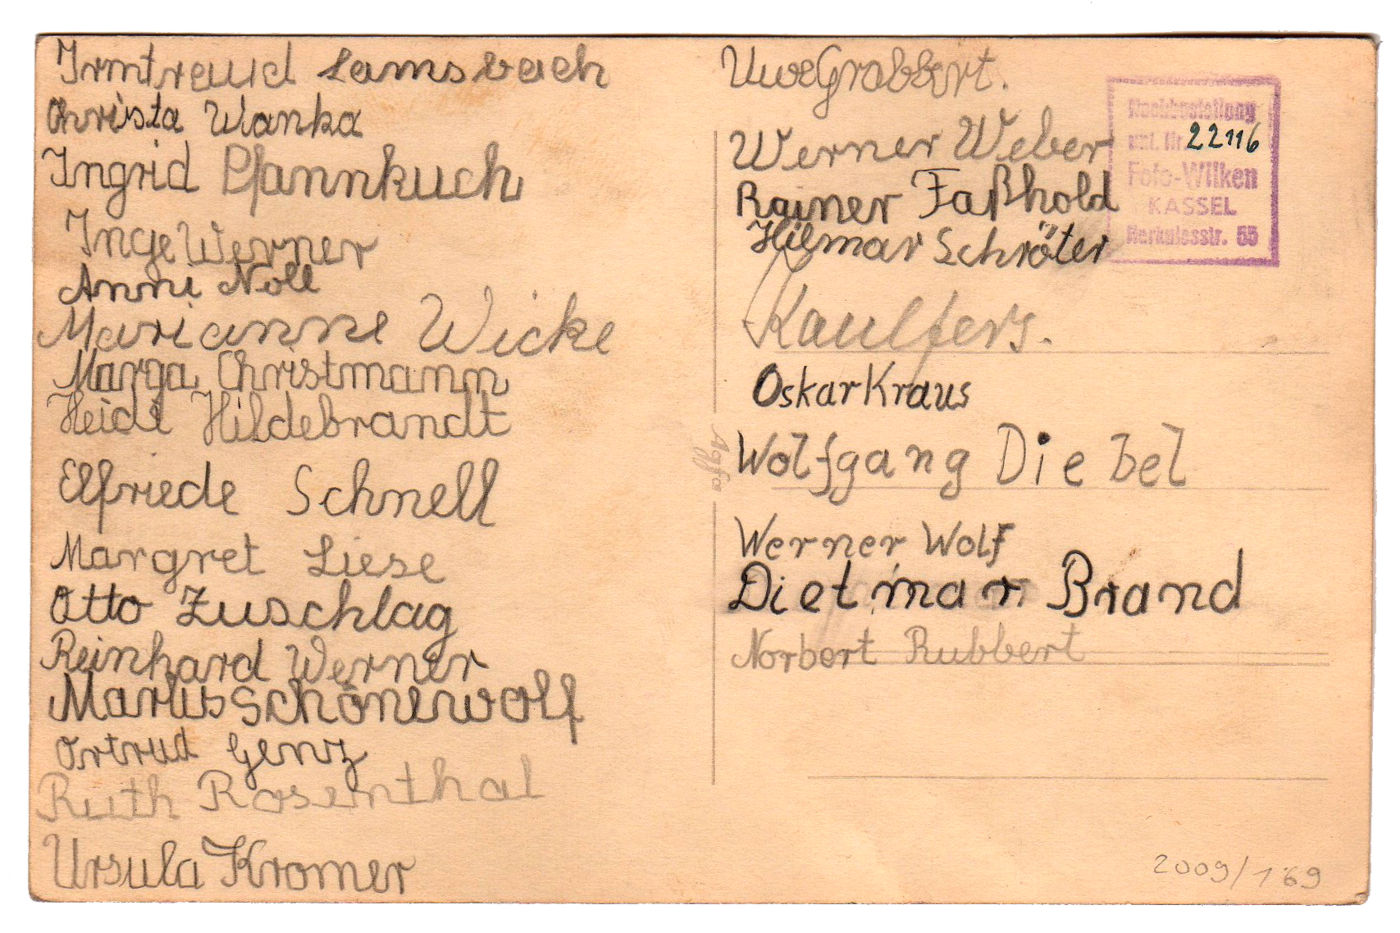 Irmtraud Lamsbach
Christa Wanka
Ingrid Pfannkuch
Inge Werner
Anni Noll
Marianne Wicke
Marga Christmann
Heide Hildebrandt
Elfriede Schnell
Margret Liese
Otto Zuschlag
Reinhard Werner
Marlis Schönewolf
Ortrud Genz
Ruth Rosenthal
Ursula Kromer
Agfa
Uwe Grabbert.
Werner Weber
Rainer Faßhold
Hilmar Schröter
Kaulfers.
Oskar Kraus
Wolfgang Diebel
Werner Wolf
Dietmar Brand
Norbert Rubbert
Nachbestellung
unt. Nr. 22116
Foto-Wilken
KASSEL
Herkulesstr. 55
2009/169